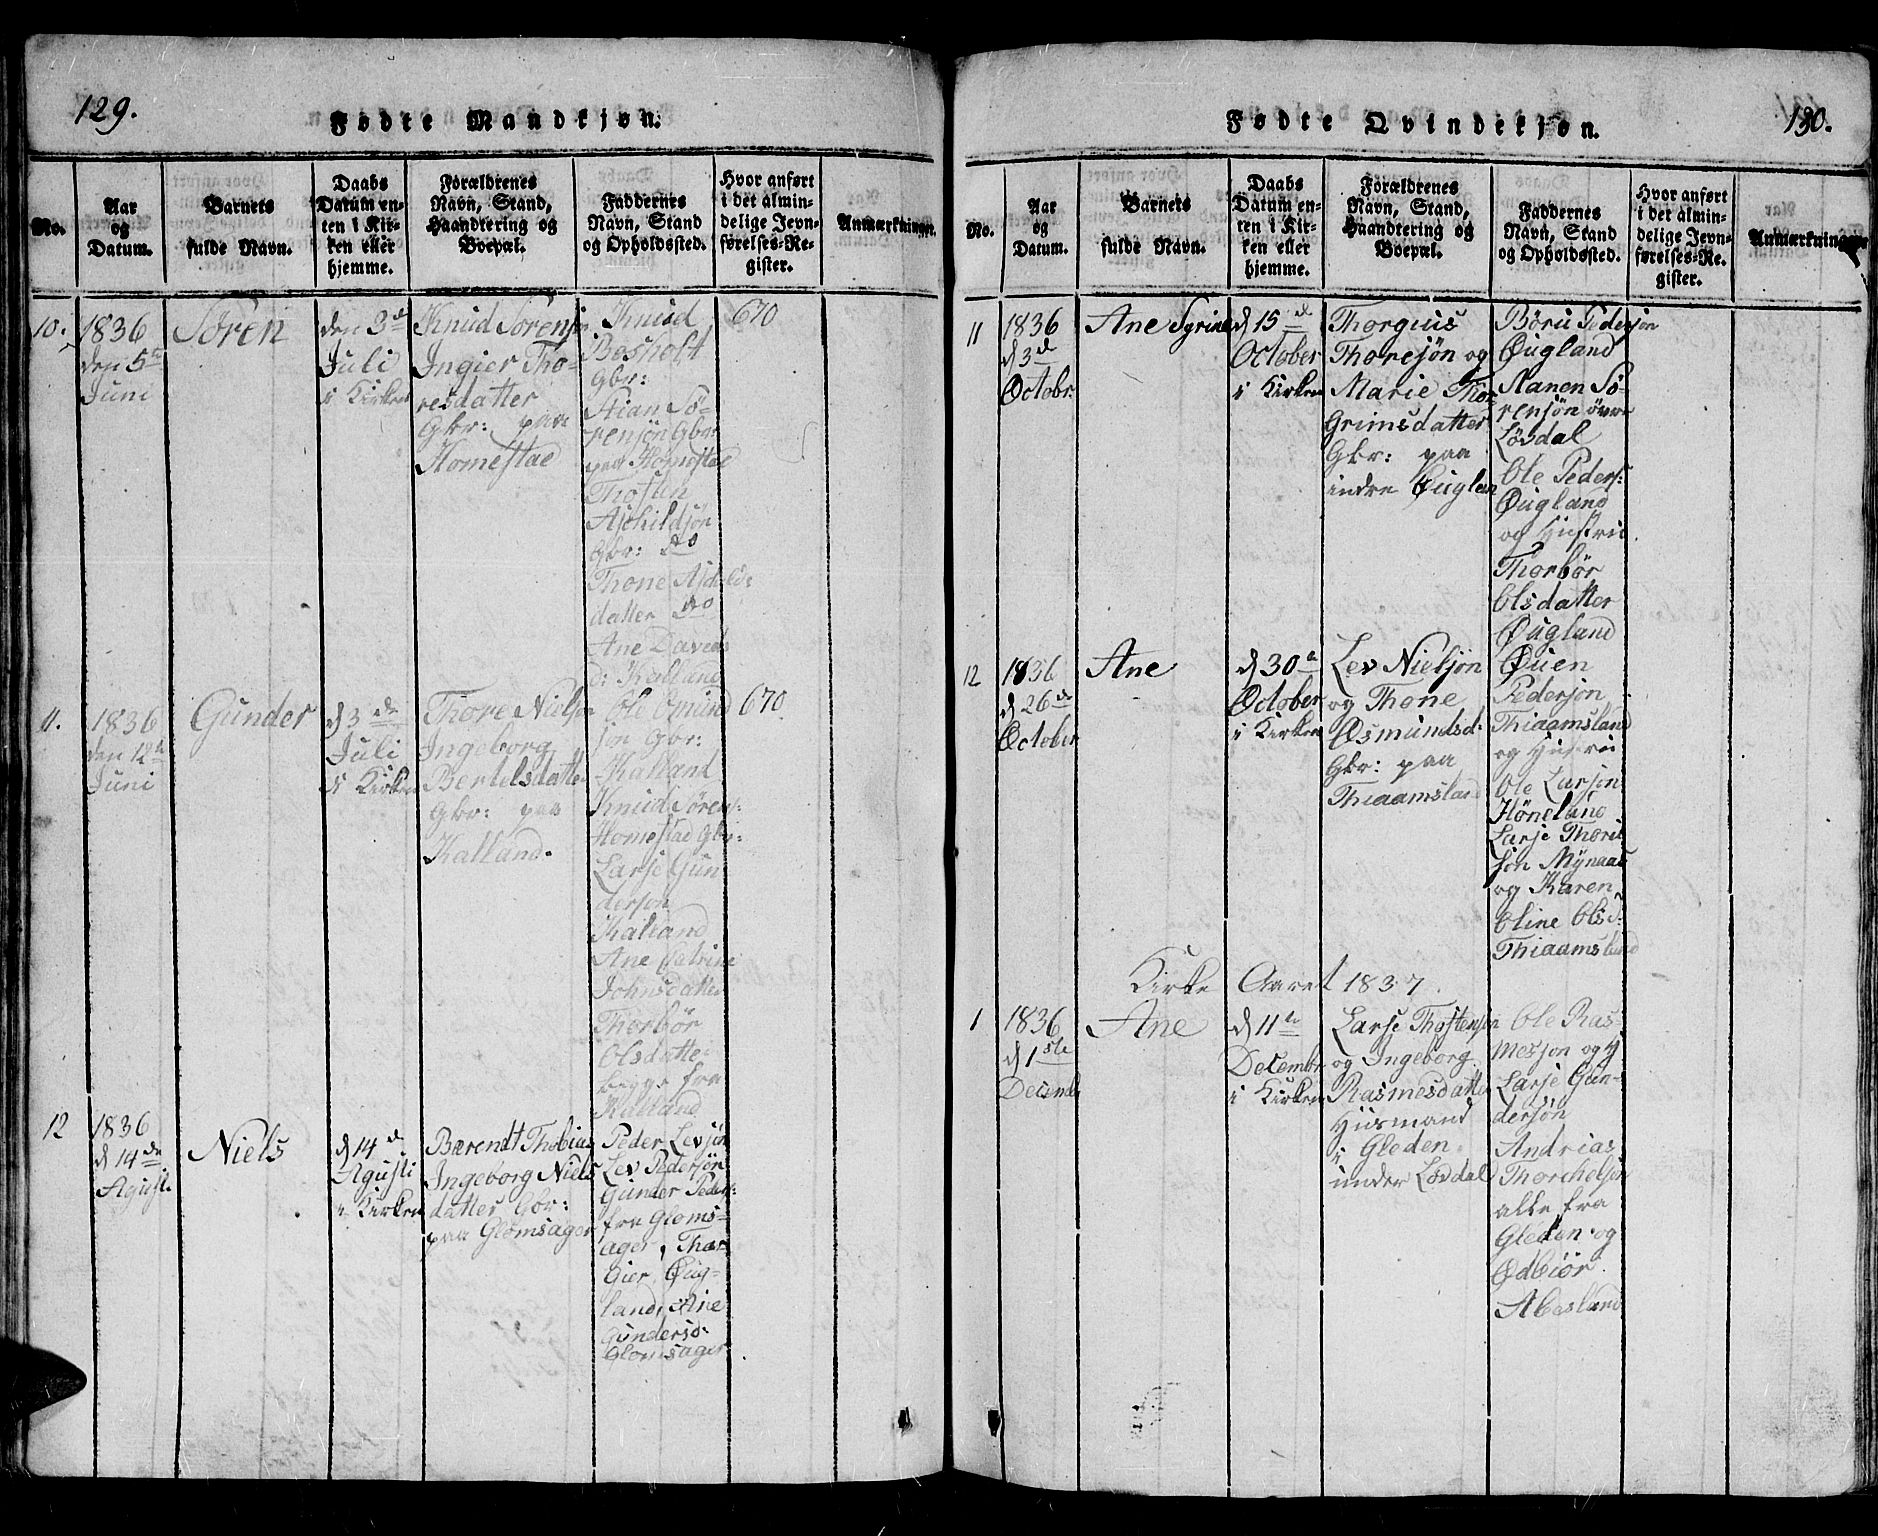 129.
Fødte Mandkjøn.
No.
Aar
og
Datum.
Barnets
fulde Navn.
Daabs
Datum en-
ten i Kir-
ken eller
hjemme.
Forældrenes
Navn, Stand,
Haandtering og
Boepæl.
Faddernes
Navn, Stand
og Opholdssted.
Hvor anført
i det almin-
delige Jevn-
førelses-Re-
gister.
Anmærkninger.
10.
1836
den 5te
Juni
Sören
den 3de
Juli
i Kirken
Knud Sörensøn
Ingier Tho-
resdatter
Gbr: paa
Homestad
Knud
Bosholt
Gbr:
Stian Sö-
rensön Gbr:
paa Homestad
Thosten
Aschildsön
Gbr: do
Thone Asdals-
datter do
Ane Davids
d: Kalland
670
11.
1836
den 12te
Juni
Gunder
d 3de
Juli
i Kirken
Thore Nielsen
Ingeborg
Bertelsdatter
Gbr: paa
Kalland.
Ole Omund
sön Gbr:
Kalland
Knud Sörens:
Homestad Gbr:
Larse Gun
derson
Kalland
Ane Catrine
Johnsdatter
Thorbör
Olsdatter
begge fra
Kalland
670
12
1836
d 14de
Agusti
Niels
d 14de
Agusti
i Kirken
Bærendt Thobias
Ingeborg Niels
datter Gbr:
paa Glomsager
Peder Levsön
Lev Pedersön
Gunder Peders:
fra Gloms-
ager, Thar
Gier Øug-
land, Ane
Gundersd:
Glomsager
130.
Fødte Qvindekjøn.
No.
Aar
og
Datum.
Barnets
fulde Navn.
Daabs
Datum en-
ten i Kir-
ken eller
hjemme.
Forældrenes
Navn, Stand,
Haandtering og
Boepæl.
Faddernes
Navn, Stand
og Opholdssted.
Hvor anført
i det almin-
delige Jevn-
førelses-Re-
gister.
Anmærkninger
11
1836
d 3de
Octobr
Ane Syrine
d 15de
October
i Kirken
Thorguus
Thoresön og
Marie Thor
Grimsdatter
Gbr: paa
indre Øuglan
Böru Pedersön
Øugland
Nanen Sö-
rensön övre
Lövdal
Ole Peders:
Øugland
og Hustru
Thorbör
Olsdatter
Øugland
12
1836
d 26de
October
Ane
d 30te
October
i Kirken
Lev Nielsön
og Thone
Osmundsd:
Gbr: paa
Thiaamsland
Øuen
Pedersön
Thiaamsland
og Hustru
Ole Larsön
Höneland
Larse Thores
sön Mynaas
og Karen
Oline Olsd:
Thiaamsland
Kirke Aaret 1837.
1
1836
d 1ste
Decembr
Ane
d 11te
Decembr
i Kirken
Larse Thostensön
og Ingeborg
Rasmesdatter
Husmand
i Gleden
under Lövdal
Ole Ras-
mesjon og
Larse Gun-
dersön
Andrias
Thorchelsön
alle fra
Gleden og
Ødbiör
Abesland